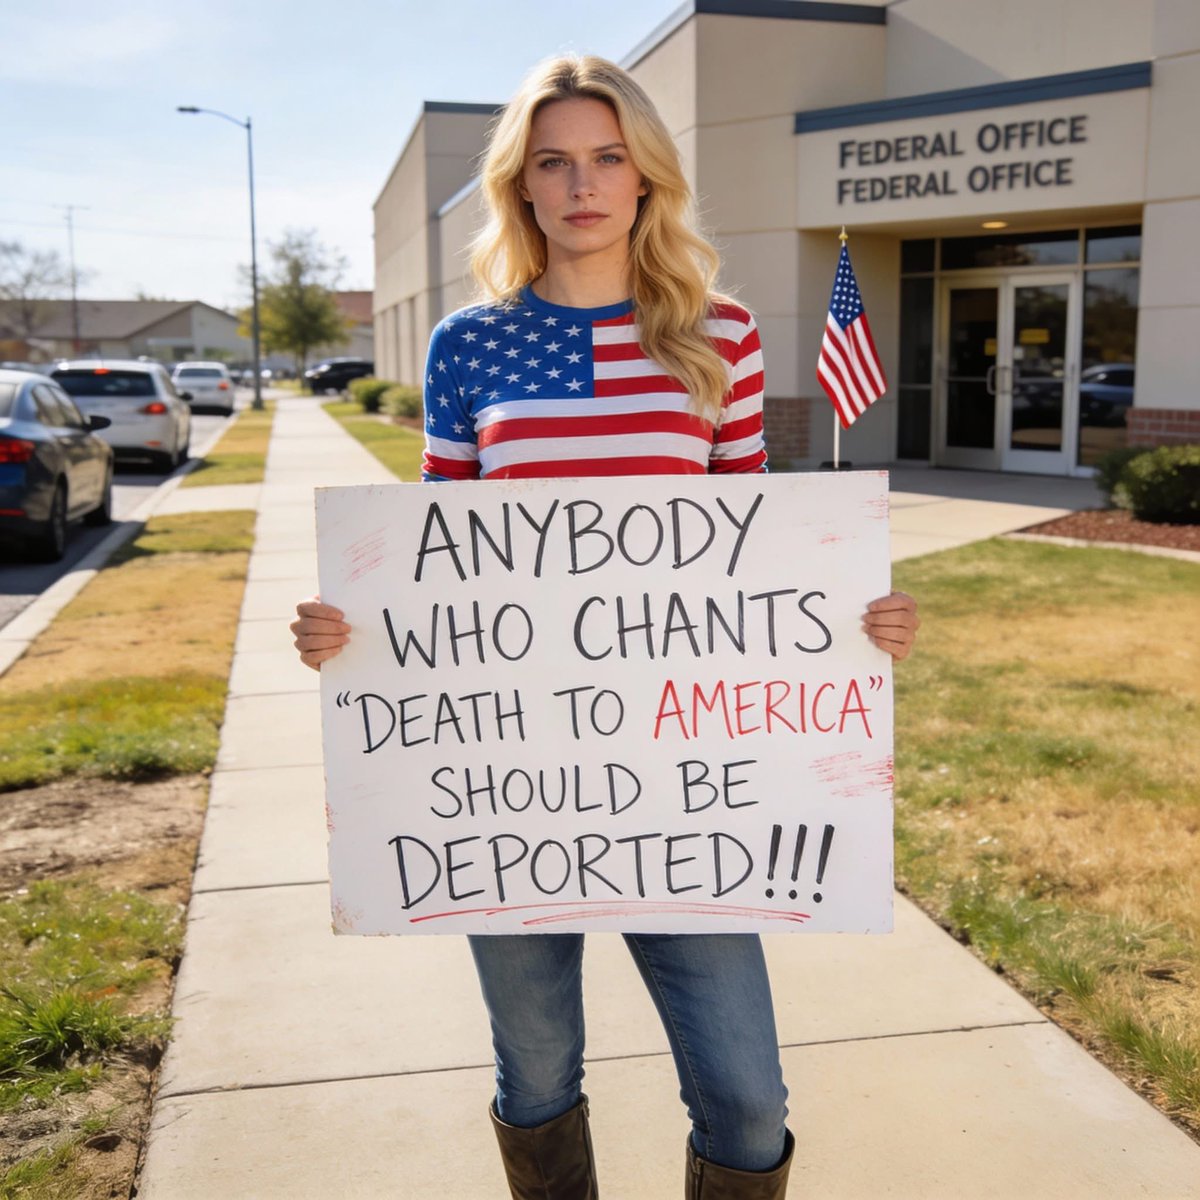 FEDERAL OFFICE
FEDERAL OFFICE
ANYBODY
WHO CHANTS
"DEATH TO AMERICA"
SHOULD BE
DEPORTED!!!